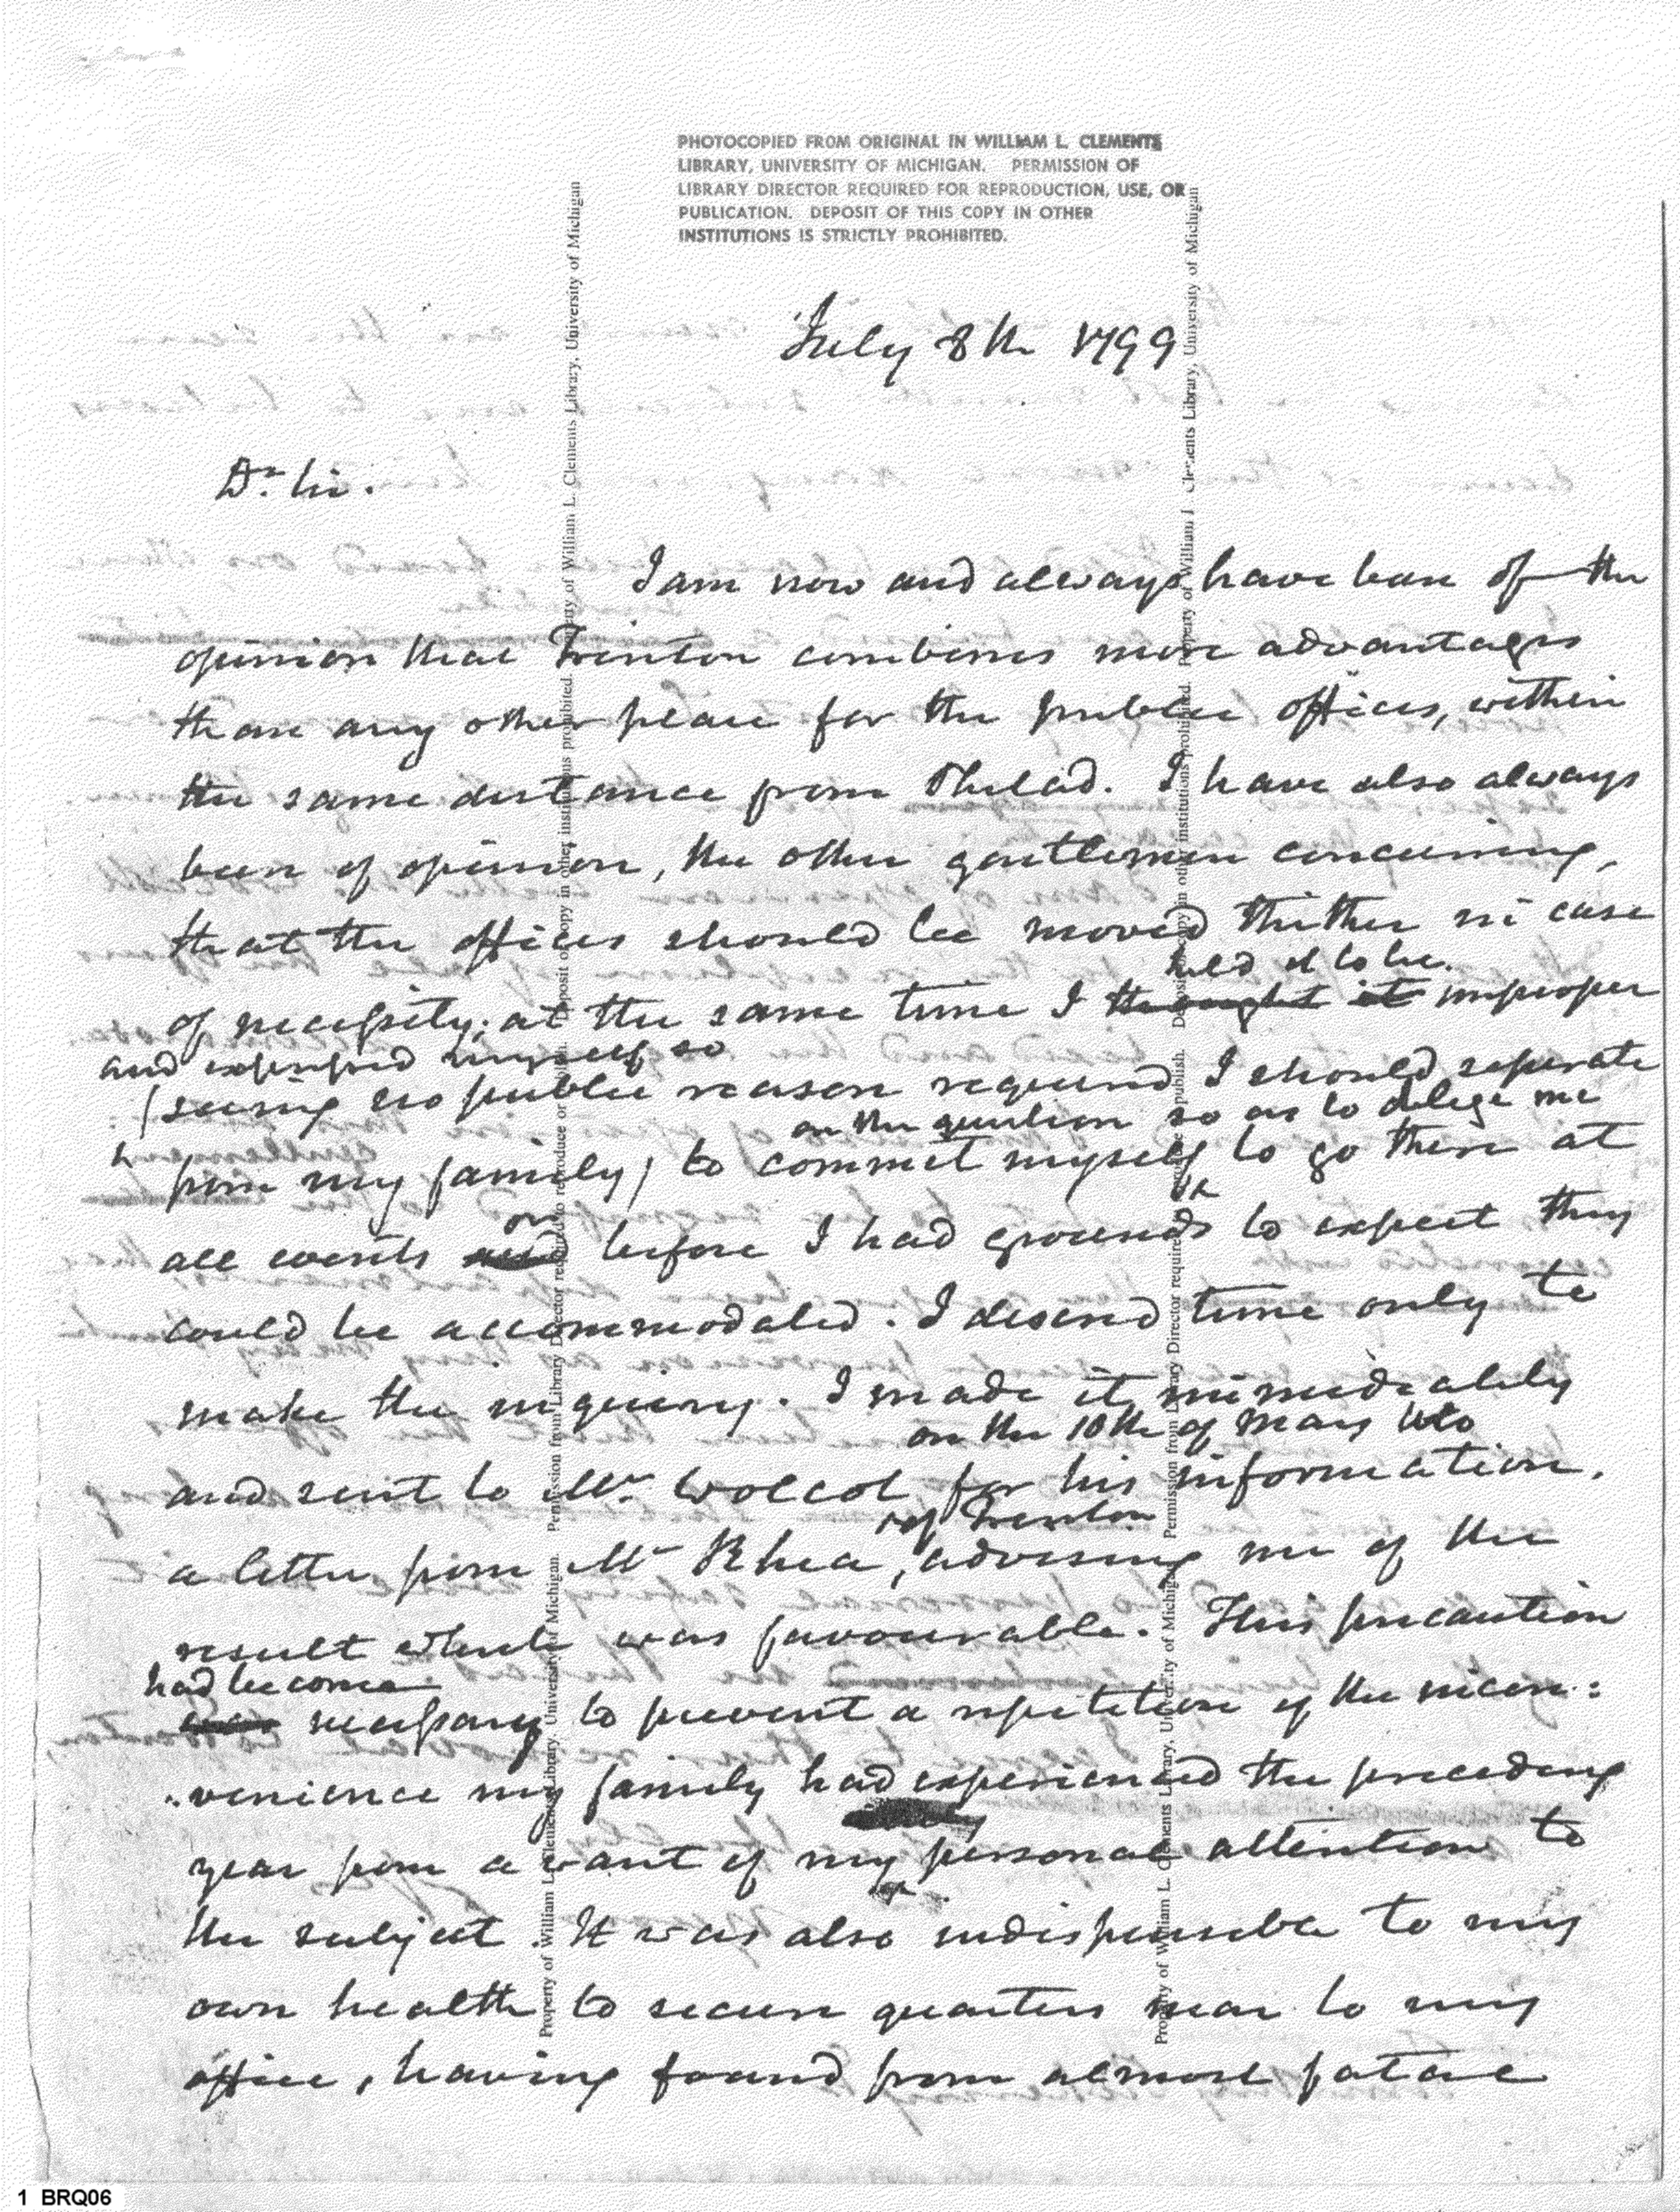 PHOTOCOPIED FROM ORIGINAL IN WILLIAM L. CLEMENTS
LIBRARY, UNIVERSITY OF MICHIGAN. PERMISSION OF
LIBRARY DIRECTOR REQUIRED FOR REPRODUCTION, USE, OR
PUBLICATION. DEPOSIT OF THIS COPY IN OTHER
INSTITUTIONS IS STRICTLY PROHIBITED.
July 8th 1799
Dr. Sir.
I am now and always have been of the
opinion that Trenton combines more advantages
than any other place for the public offices, within
the same distance from Philad. I have also always
been of opinion, the other gentlemen concurring,
that the offices should be moved thither in case
held it to be
of necessity; at the same time I thought it improper
and expressed myself so
(seeing no public reason required I should separate
on the question so as to oblige me
from my family) to commit myself to go there at
or
all events and before I had grounds to expect they
could be accommodated. I desired time only to
make the inquiry. I made it immediately
on the 10th of May
and sent to Mr. Wolcot for his information,
of Trenton
a letter from Mr Rhea, advising me of the
result which was favourable. This precaution
had become
was necessary to prevent a repetition of the incon:
:venience my family had experienced the preceding
year from a want of my personal attention to
the subject. It was also indispensible to my
own health to secure quarters near to my
office, having found from almost fatal
Property of William L. Clements Library, University of Michigan. Permission from Library Director required to reproduce or publish. Deposit of copy in other institutions prohibited. Property of William L. Clements Library, University of Michigan
Property of William L. Clements Library, University of Michigan. Permission from Library Director required to reproduce or publish. Deposit of copy in other institutions prohibited. Property of William L. Clements Library, University of Michigan
1 BRQ06